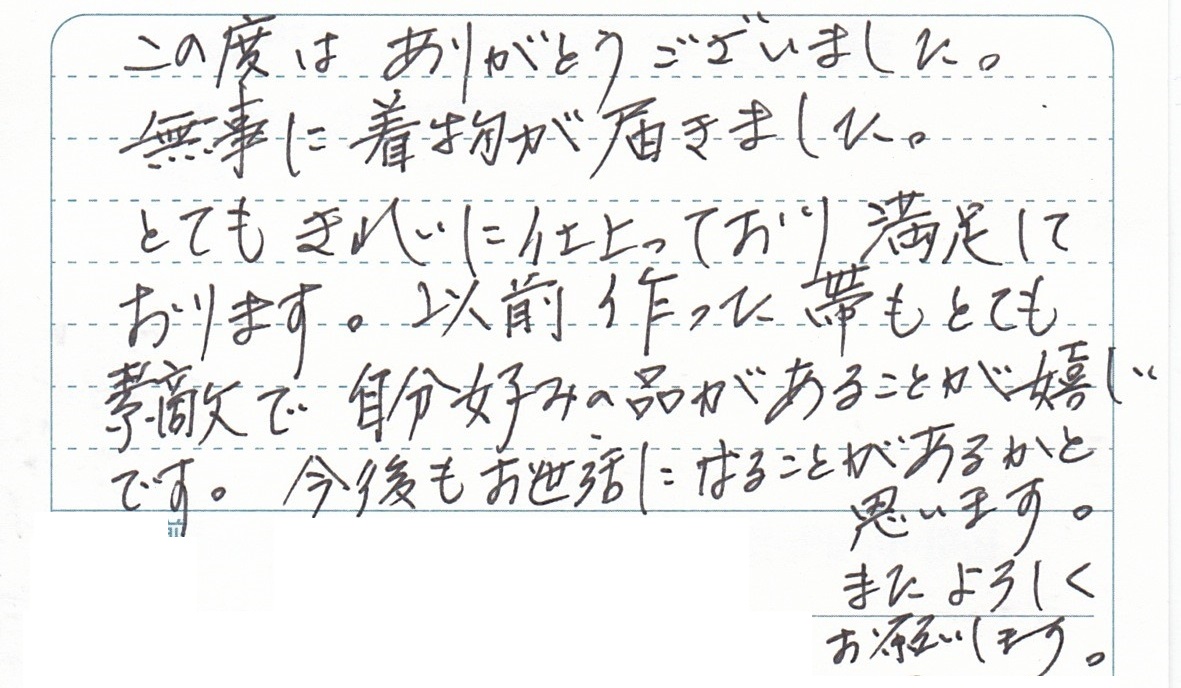 この度は ありがとうございました。
無事に着物が届きました。
とても きれいに仕上っており 満足して
おります。以前 作った 帯もとても
素敵で 自分好みの品があることが嬉しい
です。 今後もお世話になることがあるかと
思います。
またよろしく
お願いします。